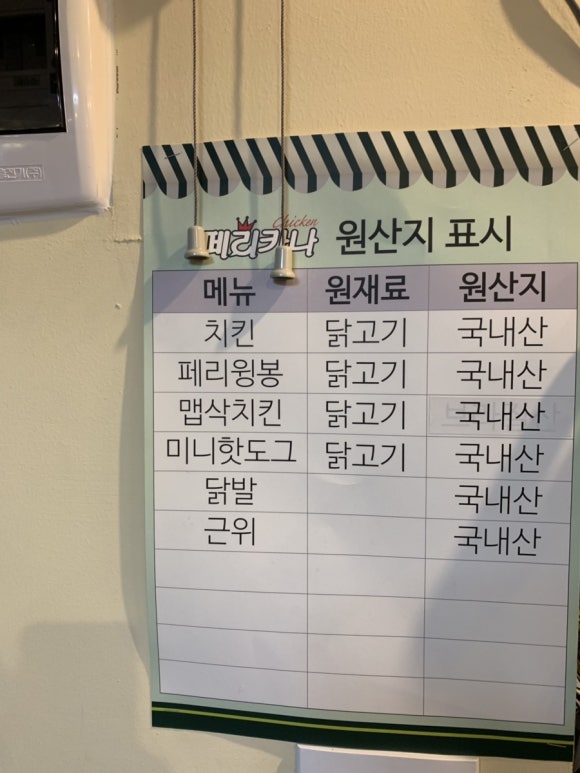 Chicken
페리카나 원산지 표시
메뉴 원재료 원산지
치킨 닭고기 국내산
페리윙봉 닭고기 국내산
맵삭치킨 닭고기 국내산
미니핫도그 닭고기 국내산
닭발 국내산
근위 국내산